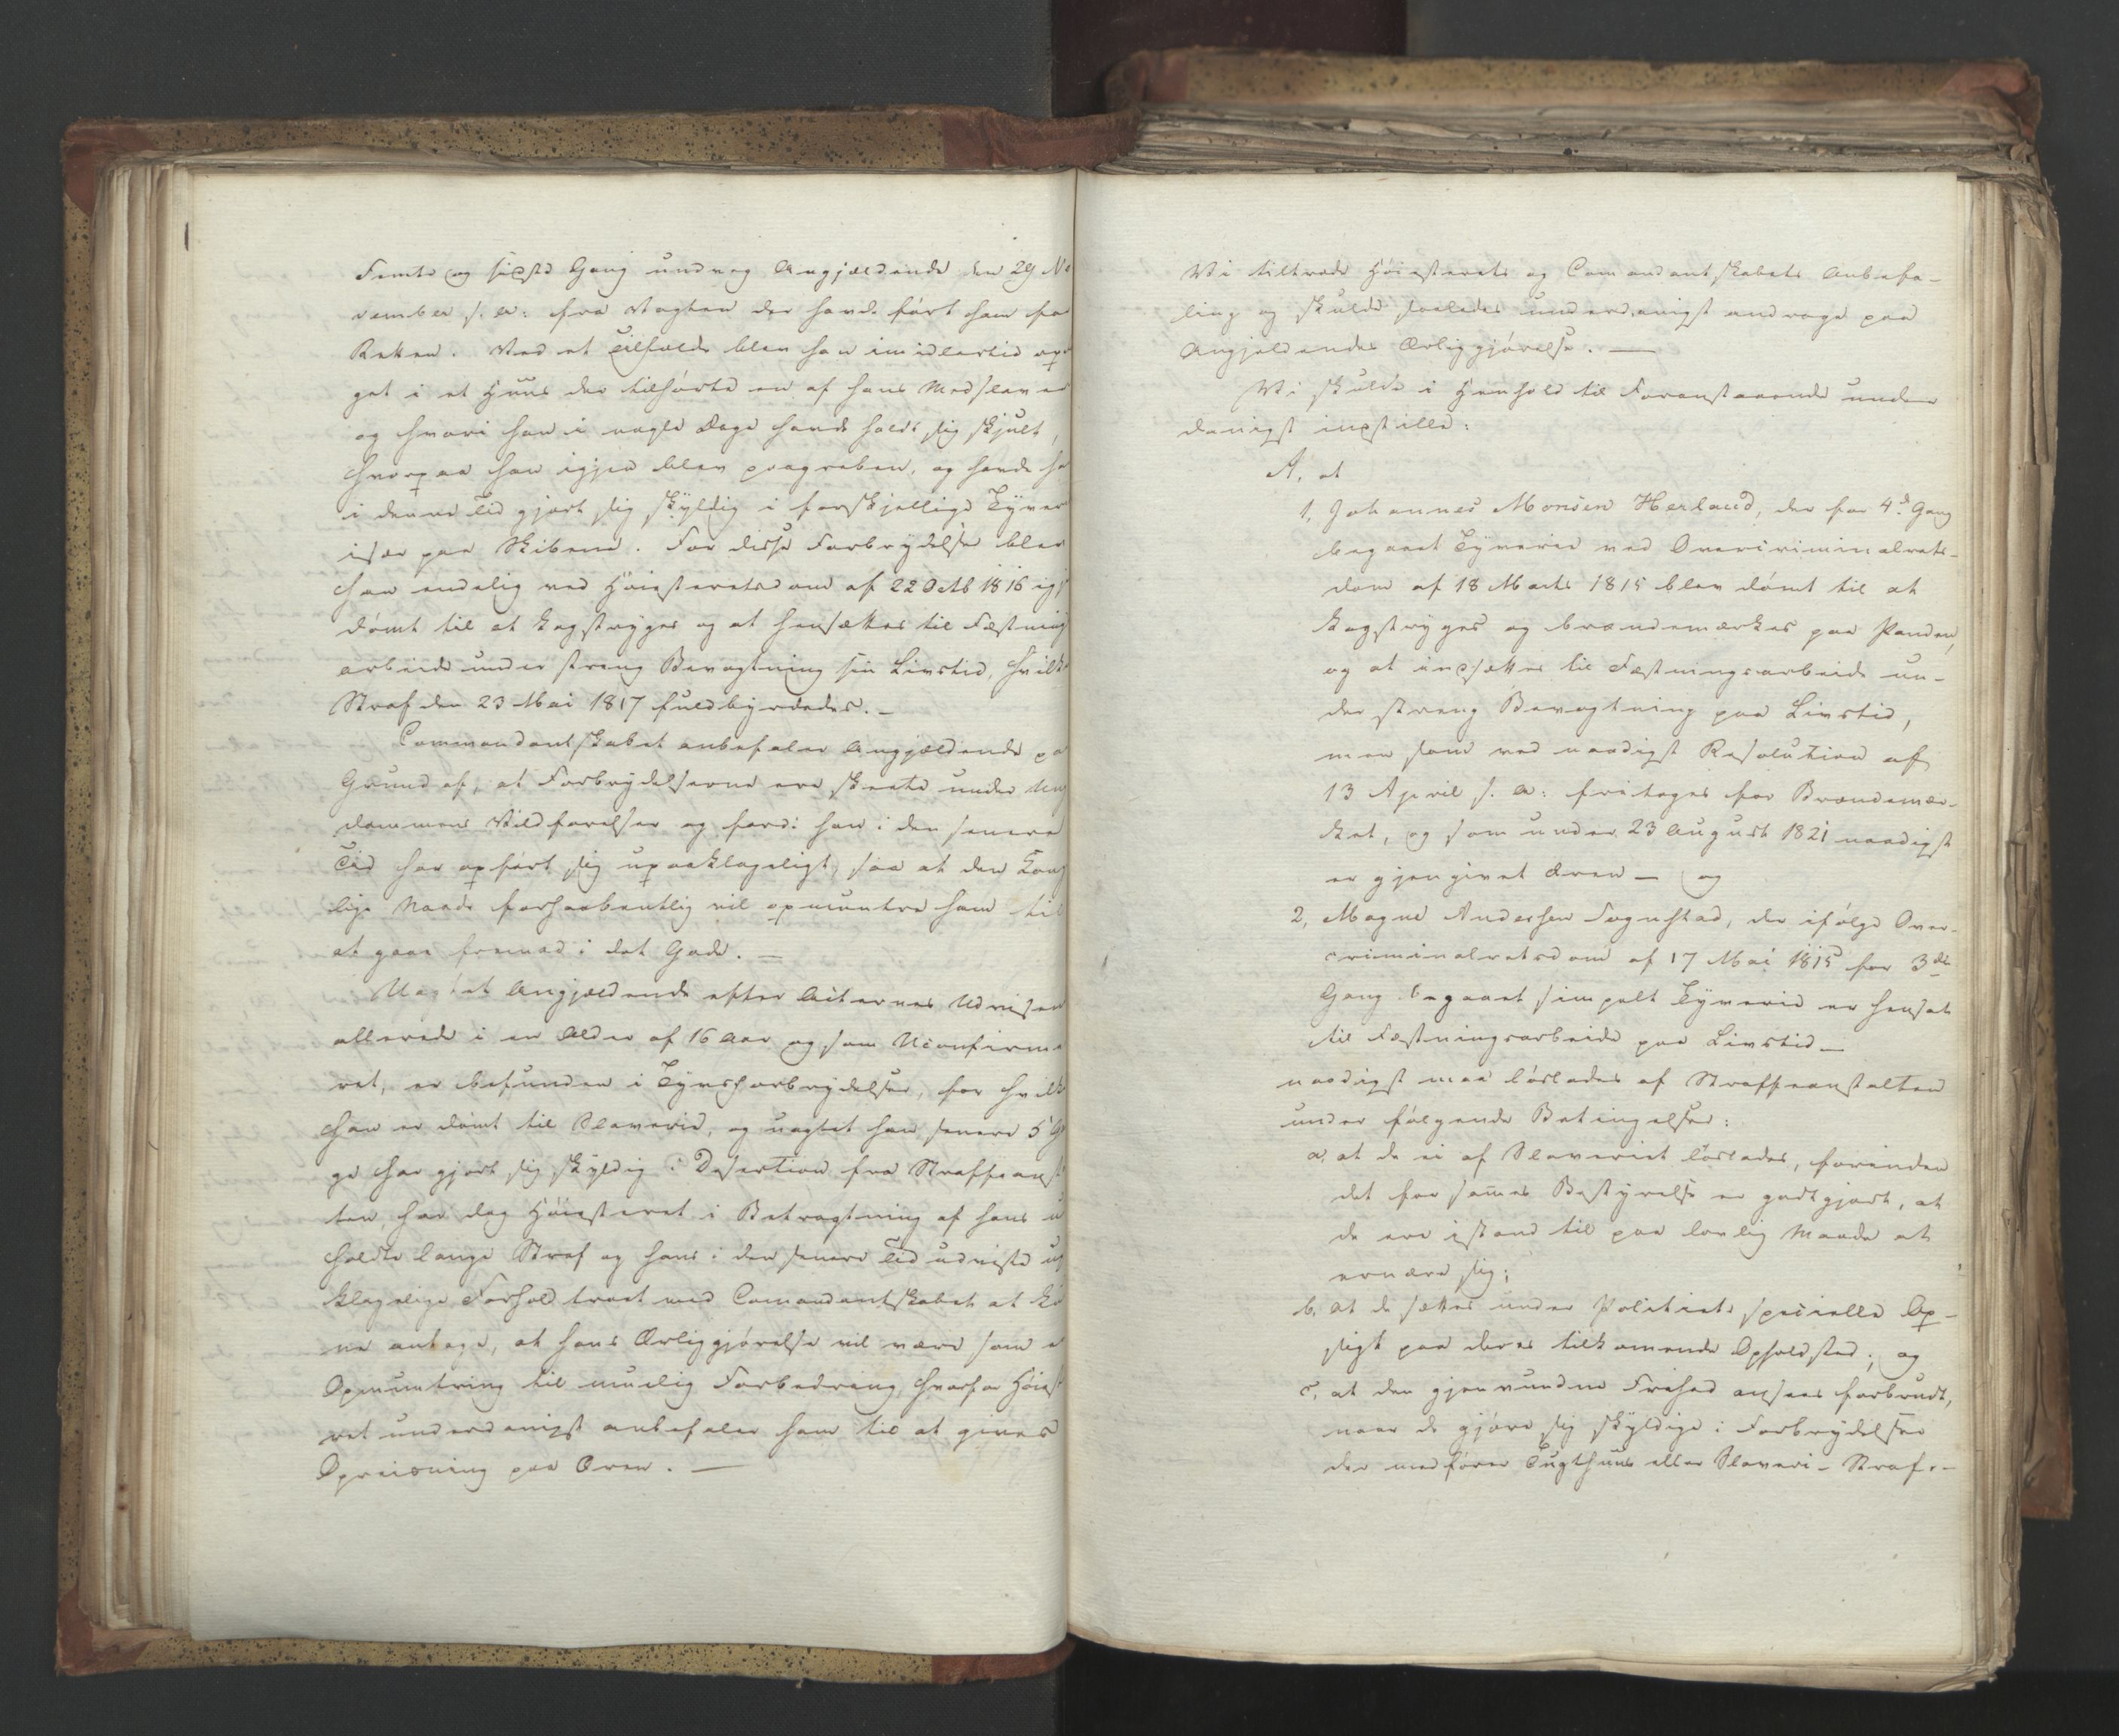 Femte og sidste Gang undveg Angjældende den 29 No
vember s. A: fra Vagten der havde ført ham fra
Retten. Ved et Tilfælde blev han imidlertid opta
get i et Huus der tilhørte en af hans Medslaver
og hvori han i nogle Dage havde holdt sig skjult,
hvorpaa han igjen blev paagreben, og havde ha
i denne Tid gjort sig skyldig i forskjellige Tyver
især paa Skibene. For disse Forbrydelser blev
han endelig ved Høiesteretsdom af 22 Octb 1816 igj
dømt til at kagstryges og at hensættes til Fæstnings
arbeide under streng Bevogtning sin Livstid, hvilke
Straf den 23 Mai 1817 fuldbyrdedes. –
Commandantskabet anbefaler Angjældende pa
Grund af, at Forbrydelserne ere skeete under Ung
dommens Vildfarelser og fordi han i den senere
Tid har opført sig upaaklageligt, saa at den Kong
lige Naade forhaabentlig vil opmuntre ham til
at gaae fremad i det Gode. –
Uagtet Angjældende efter Acternes Udvisen
allerede i en Alder af 16 Aar og som Uconfirme
ret, er befunden i Tyvsforbrydelser, for hvilke
han er dømt til Slaverie, og uagtet han senere 5 Ga
ge har gjort sig skyldig i Desertion fra Straffeanst
ten, har dog Høiesteret i Betragtning af hans u
holdte lange Straf og hans i den senere Tid udviste up
klagelige Forhold troet med Comandantskabet at ku
ne antage, at hans Ærliggjørelse vil være som e
Opmuntring til muelig Forbedring, hvorfor Høies
ret underdanigst anbefaler ham til at gives
Opreisning paa Æren. –
Vi tiltræde Høiesterets og Comandantskabets Anbefa-
ling og skulde saaledes underdanigst andrage paa
Angjeldendes Ærliggjørelse. –
Vi skulde i Henhold til Foranstaaende under
danigst indstille:
A, at
1, Johannes Monsen Herland, der for 4de Gang
begaaet Tyverie ved Overcriminalrets-
dom af 18 Marts 1815 blev dømt til at
kagstryges og brændemærkes paa Panden,
og at indsættes til Fæstningsarbeide un-
der streng Bevogtning paa Livstid,
men som ved naadigst Resolution af
13 April s. A: fritoges for Brændemær-
ket, og som under 23 August 1821 naadigst
er gjengivet Æren – og
2, Magne Andersen Fognstad, der ifølge Over-
criminalretsdom af 17 Mai 1815 for 3die
Gang begaaet simpelt Tyverie er hensat
til Fæstningsarbeide paa Livstid –
naadigst maa løslades af Straffeanstalten
under følgende Betingelser:
a, at de ei af Slaveriet løslades, forinden
det for sammes Bestyrelse er godtgjort, at
de ere istand til paa lovlig Maade at
ernære sig;
b, at de sættes under Politiets specielle Op-
sigt paa deres tilkomende Opholdsted; og
c, at den gjenvundne Frihed ansees forbrudt,
naar de gjøre sig skyldige i Forbrydelser
der medfører Tugthuus eller Slaveri-Straf. –